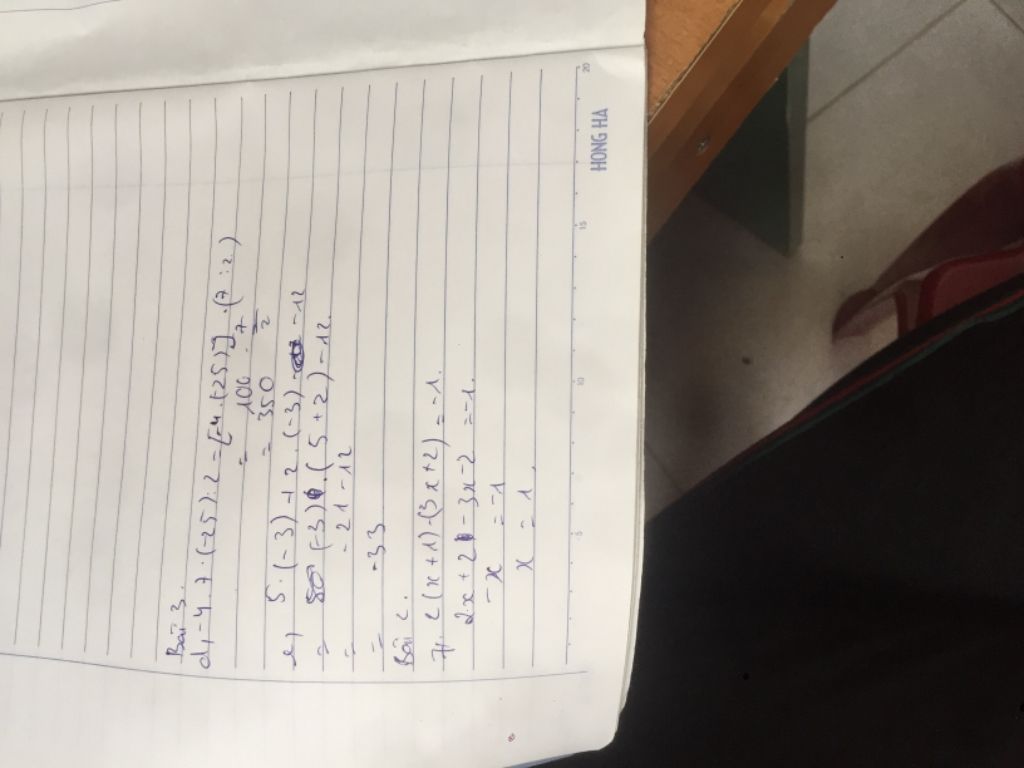 Bài 3.
d, -4.7.(-25):2 = [-4.(-25)].(7:2)
= 100 . 7/2
= 350
e) 5.(-3)+2.(-3) -12
= (-3).(5+2)-12.
= -21-12
= -33
Bài 2.
7). 2(x+1)-(3x+2)=-1.
2x+2-3x-2=-1.
-x=-1
x=1.
5 10 15 20
HONG HA